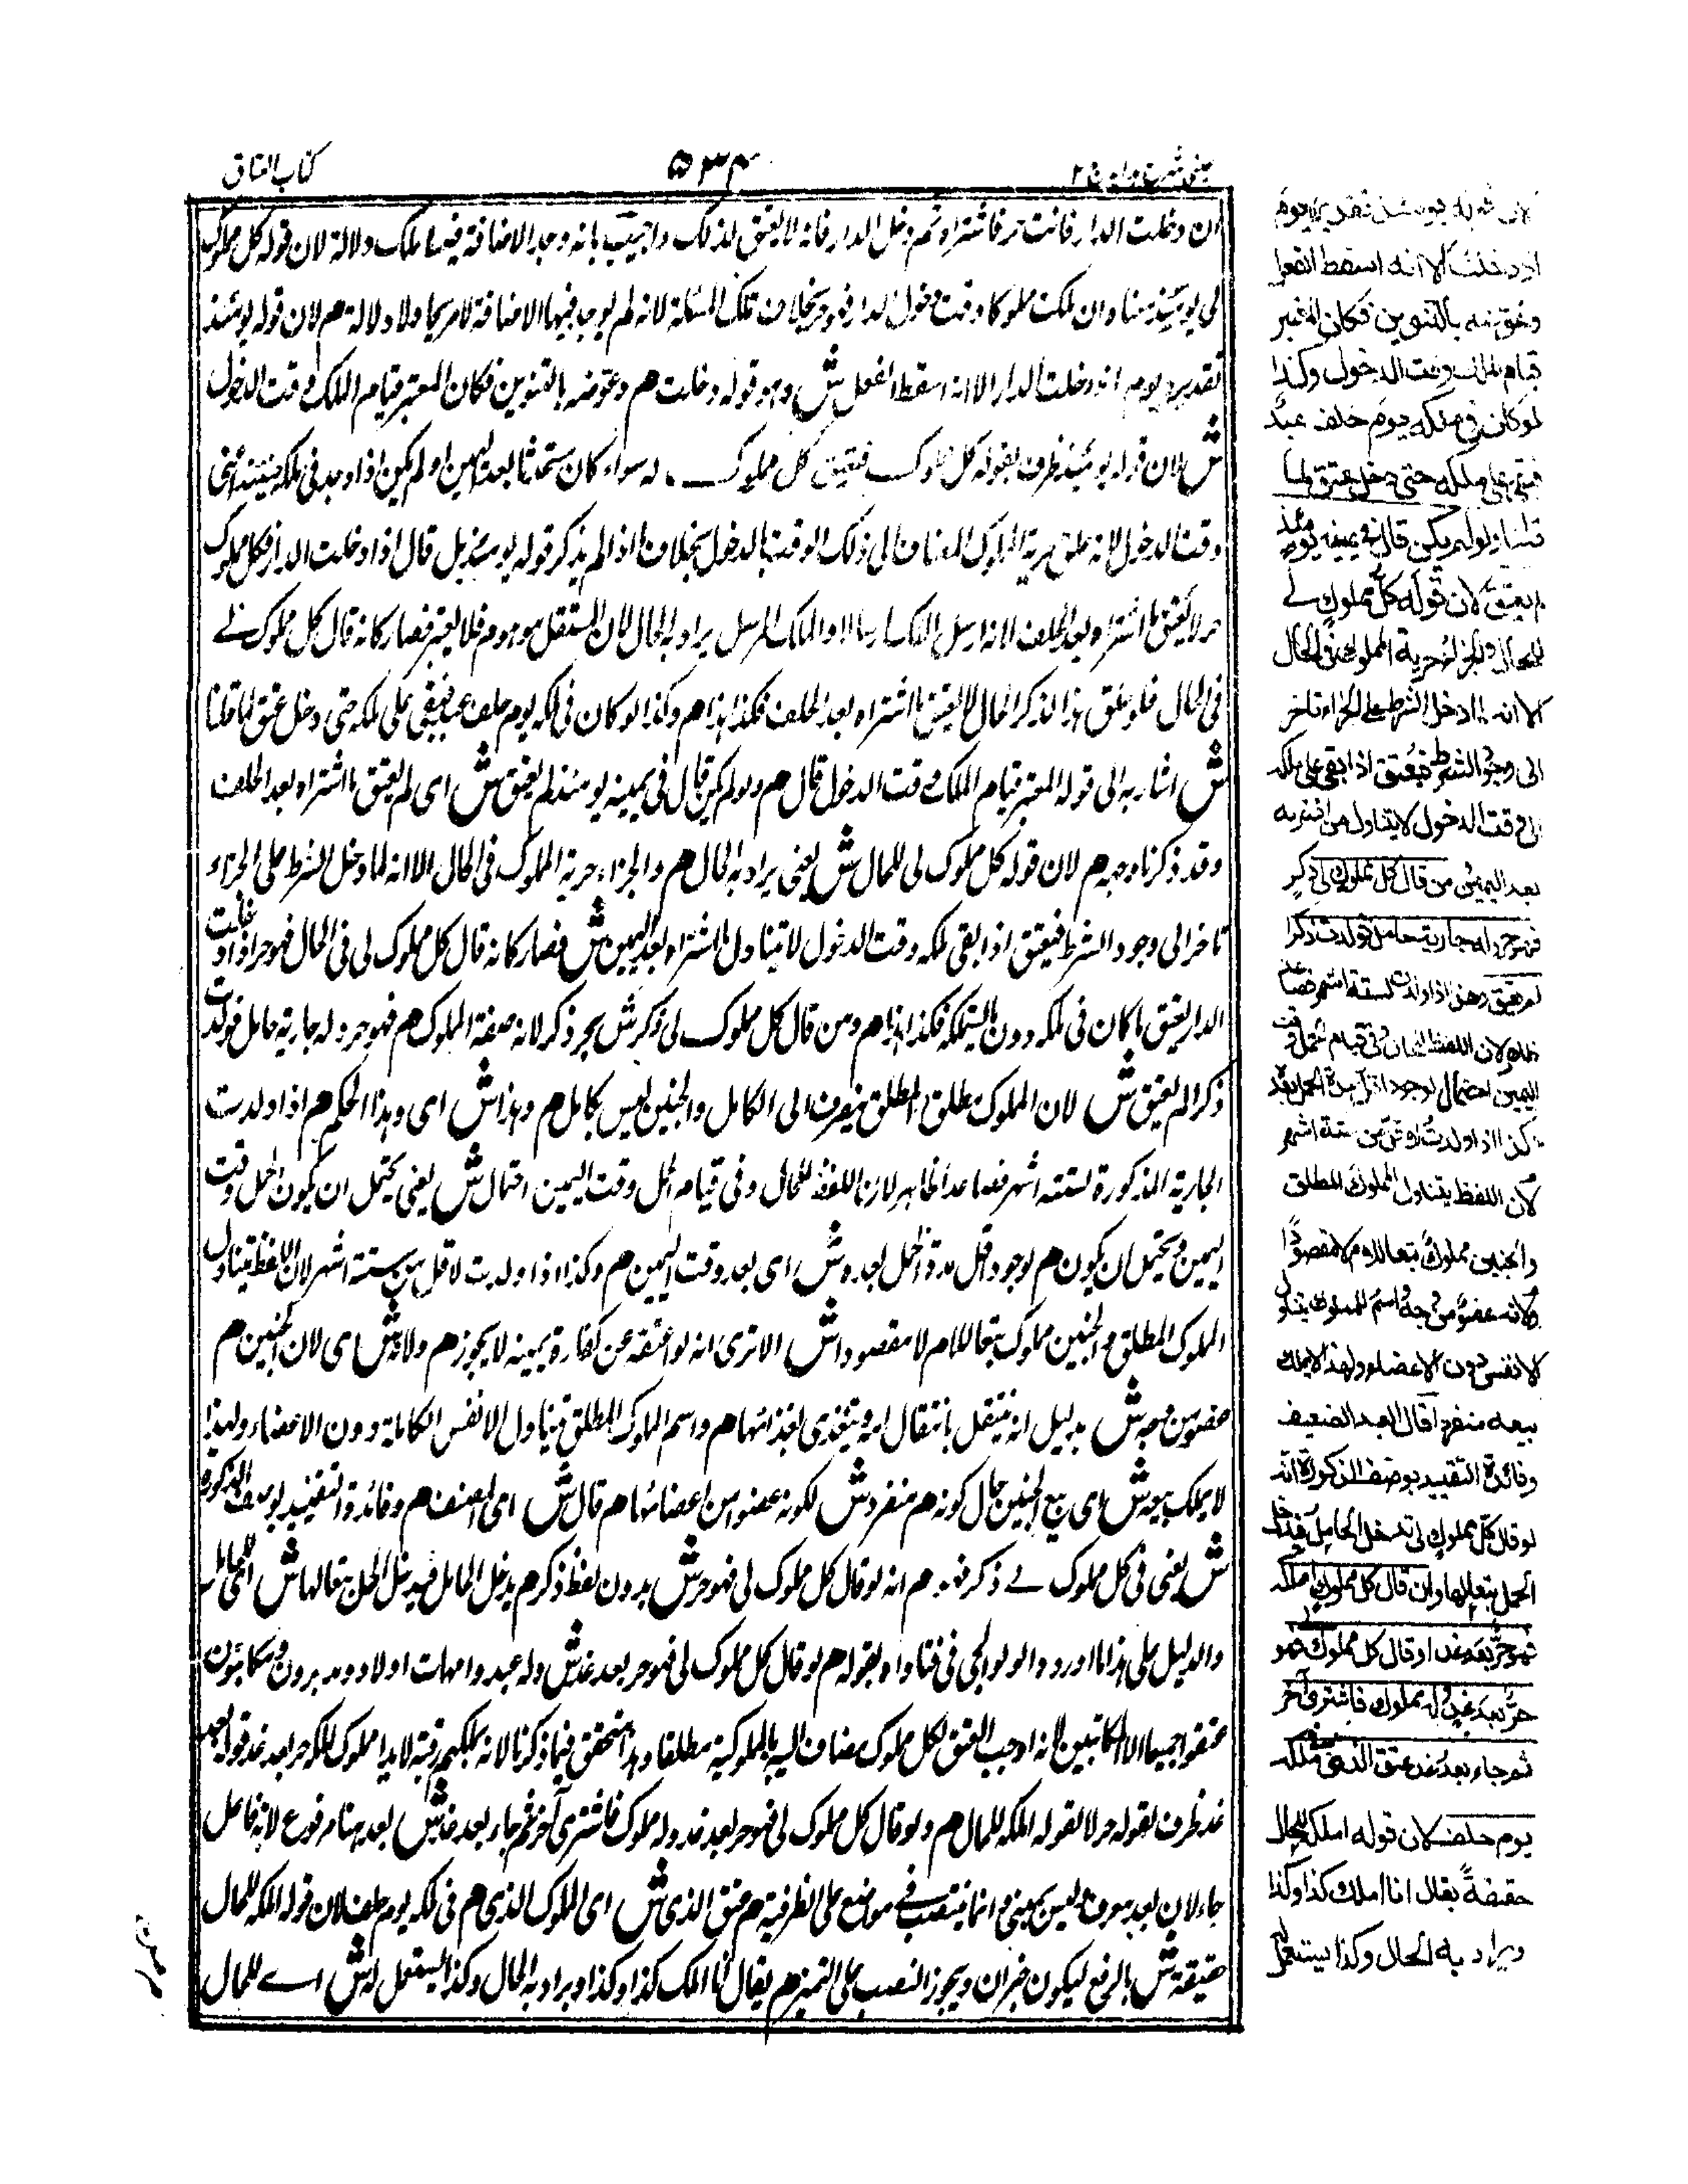 عینی شرح ہدایہ ج ۲
۵۳۴
کتاب العتاق
ان دخلت الدار فانت حر فاشتراه ثم دخل الدار فانه لا یعتق لذلک واجیب بانه وجد الاضافة فیها ملک دلالة لان قوله کل مملوک
لی یومئذ معناه ان ملکت مملوکا وقت دخول الدار فهو حر بخلاف تلک المسئلة لانه لم یوجد فیها الاضافة لا صریحا ولا دلالة هم لان قوله یومئذ
تقدیره یوم اذ دخلت الدار الا انه اسقط الفعل ش وهو قوله دخلت هم وعوضه بالتنوین فکان المعتبر قیام الملک وقت الدخول
ش لان قوله یومئذ ظرف لقوله کل مملوک فیعتق کل مملوک له سواء کان مستحدثا بعد الیمین او لم یکن اذا وجد فی ملکه حینئذ اعنی
وقت الدخول لانه علق حریة المملوک المضاف الی ذلک الوقت بالدخول بخلاف اذا لم یذکر قوله یومئذ بل قال اذا دخلت الدار فکل مملوک
حر لا یعتق ما اشتراه بعد الحلف لانه ارسل الملک ارسالا والملک المرسل یراد به الحال لان المستقبل موهوم فلا یعتبر فصار کانه قال کل مملوک لی
فی الحال فلو علق هذا لذکر الحال لا یعتق ما اشتراه بعد الحلف فکذا هذا هم وکذا لو کان فی ملکه یوم حلف عبد فبقی علی ملکه حتی دخل عتق لما قلنا
ش اشار به الی قوله المعتبر قیام الملک وقت الدخول قال هم ولو لم یکن قال فی یمینه یومئذ لم یعتق ش ای لم یعتق ما اشتراه بعد الحلف
وقد ذکرنا وجهه هم لان قوله کل مملوک لی للحال ش یعنی یراد به الحال هم والجزاء حریة المملوک فی الحال الا انه لما دخل الشرط علی الجزاء
تاخر الی وجود الشرط فیعتق اذا بقی ملکه وقت الدخول لا یتناول ما اشتراه بعد الیمین ش فصار کانه قال کل مملوک لی فی الحال فهو حر اذا دخلت
الدار یعتق ما کان فی ملکه دون ما یستملکه فکذا هذا هم ومن قال کل مملوک لی ذکر ش بجر ذکر لانه صفة المملوک هم فهو حر وله جاریة حامل فولدت
ذکرا لم یعتق ش لان المملوک مطلق والمطلق ینصرف الی الکامل والجنین لیس بکامل هم وهذا ش ای وهذا الحکم هم اذا ولدت
الجاریة المذکورة لستة اشهر فصاعدا ظاهر لان اللفظ للحال وفی قیام الحمل وقت الیمین احتمال ش یعنی یحتمل ان یکون الحمل وقت
الیمین ویحتمل ان یکون هم لوجود اقل مدة الحمل بعده ش ای بعد وقت الیمین هم وکذا اذا ولدت لاقل من ستة اشهر لان اللفظ یتناول
المملوک المطلق والجنین مملوک تبعا للام لا مقصودا ش الا تری انه لو اعتقه عن کفارة یمینه لا یجوز هم ولانه ش ای لان الجنین هم
عضو من وجه ش بدلیل انه ینتقل بانتقال امه ویتغذی بغذائها هم واسم المملوک المطلق یتناول الانفس الکاملة دون الاعضاء ولهذا
لا یملک بیعه ش ای بیع الجنین حال کونه هم منفردا ش لکونه عضوا من اعضائها هم قال ش ای المصنف هم وفائدة التقیید بوصف الذکورة
ش یعنی فی کل مملوک لی ذکر فهو حر هم انه لو قال کل مملوک لی فهو حر ش بدون لفظ ذکر هم یدخل الحامل فیدخل الحمل تبعا لها ش ای للحامل
والدلیل علی هذا ما اورده الولوالجی فی فتاواه بقوله هم لو قال کل مملوک لی فهو حر بعد غد ش وله عبید وامهات اولاد ومدبرون ومکاتبون
عتقوا جمیعا الا المکاتبین لانه اوجب العتق لکل مملوک مضاف الیه بالمملوکیة مطلقا وهذا متحقق فیما ذکرنا لانه یملکهم رقبة لا یدا مملوک املکه حر بعد غد قوله بعد
غد ظرف لقوله حر لا لقوله املکه للحال هم ولو قال کل مملوک لی فهو حر بعد غد وله مملوک فاشتری آخر ثم جاء بعد غد ش بعد ههنا مرفوع لانه فاعل
جاء لان بعد معرف لیس بمبنی وانما ینتصب فی موضع علی الظرفیة هم عتق الذی ش ای المملوک الذی هم فی ملکه یوم حلف لان قوله املکه للحال
حقیقة ش بالرفع لیکون خبر ان ویجوز النصب علی التمییز هم یقال انا املک کذا وکذا ویراد به الحال وکذا یستعمل له ش ای للحال
لان قوله یومئذ تقدیره یوم
اذ دخلت الا انه اسقط الفعل
وعوضه بالتنوین فکان المعتبر
قیام الملک وقت الدخول وکذا
لو کان فی ملکه یوم حلف عبد
فبقی علی ملکه حتی دخل عتق لما
قلنا ولو لم یکن قال فی یمینه یومئذ
لم یعتق لان قوله کل مملوک لی
للحال والجزاء حریة المملوک فی الحال
الا انه لما دخل الشرط علی الجزاء تاخر
الی وجود الشرط فیعتق اذا بقی علی ملکه
الی وقت الدخول لا یتناول من اشتریه
بعد الیمین ومن قال کل مملوک لی ذکر
فهو حر وله جاریة حامل فولدت ذکرا
لم یعتق وهذا اذا ولدت لستة اشهر فصاعدا
ظاهر لان اللفظ للحال وفی قیام الحمل وقت
الیمین احتمال لوجود اقل مدة الحمل بعده
وکذا اذا ولدت لاقل من ستة اشهر
لان اللفظ یتناول المملوک المطلق
والجنین مملوک تبعا للام لا مقصودا
ولانه عضو من وجه واسم المملوک یتناول
الانفس دون الاعضاء ولهذا لا یملک
بیعه منفردا قال العبد الضعیف
وفائدة التقیید بوصف الذکورة انه
لو قال کل مملوک لی تدخل الحامل فیدخل
الحمل تبعا لها وان قال کل مملوک املکه
فهو حر بعد غد او قال کل مملوک لی فهو
حر بعد غد وله مملوک فاشتری آخر
ثم جاء بعد غد عتق الذی فی ملکه
یوم حلف لان قوله املکه للحال
حقیقة یقال انا املک کذا وکذا
ویراد به الحال وکذا یستعمل له